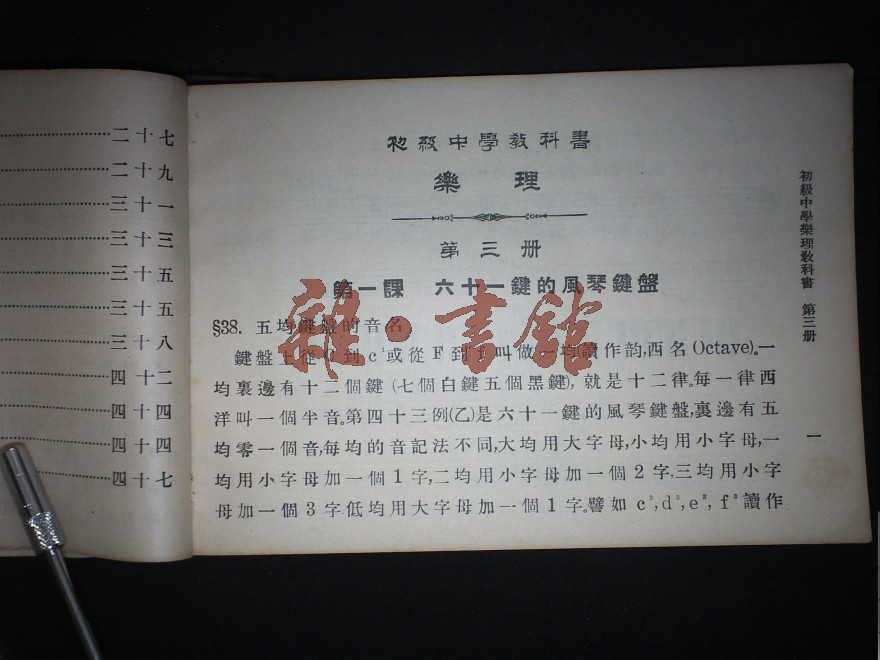 二十七
二十九
三十一
三十三
三十五
三十五
三十八
四十二
四十四
四十四
四十七
初級中學教科書
樂理
第三册
第一課 六十一鍵的風琴鍵盤
§38. 五均鍵盤的音名
鍵盤上從C到c¹或從F到f叫做一均(讀作韵,西名(Octave)。一
均裏邊有十二個鍵(七個白鍵五個黑鍵),就是十二律。每一律西
洋叫一個半音。第四十三例(乙)是六十一鍵的風琴鍵盤,裏邊有五
均零一個音,每均的音記法不同,大均用大字母,小均用小字母,一
均用小字母加一個1字,二均用小字母加一個2字,三均用小字
母加一個3字.低均用大字母加一個1字。譬如c²,d²,e²,f²讀作
初級中學樂理教科書 第三册
一
雜·書館